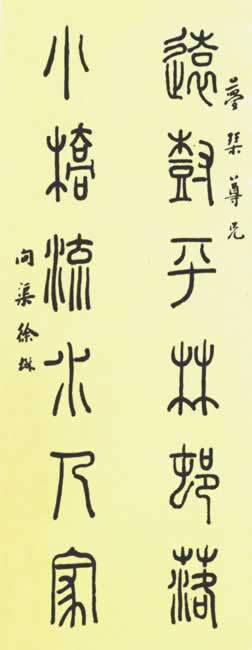 夢琹尊兄
遠樹平林邨落
小橋流水人家
問渠徐楙